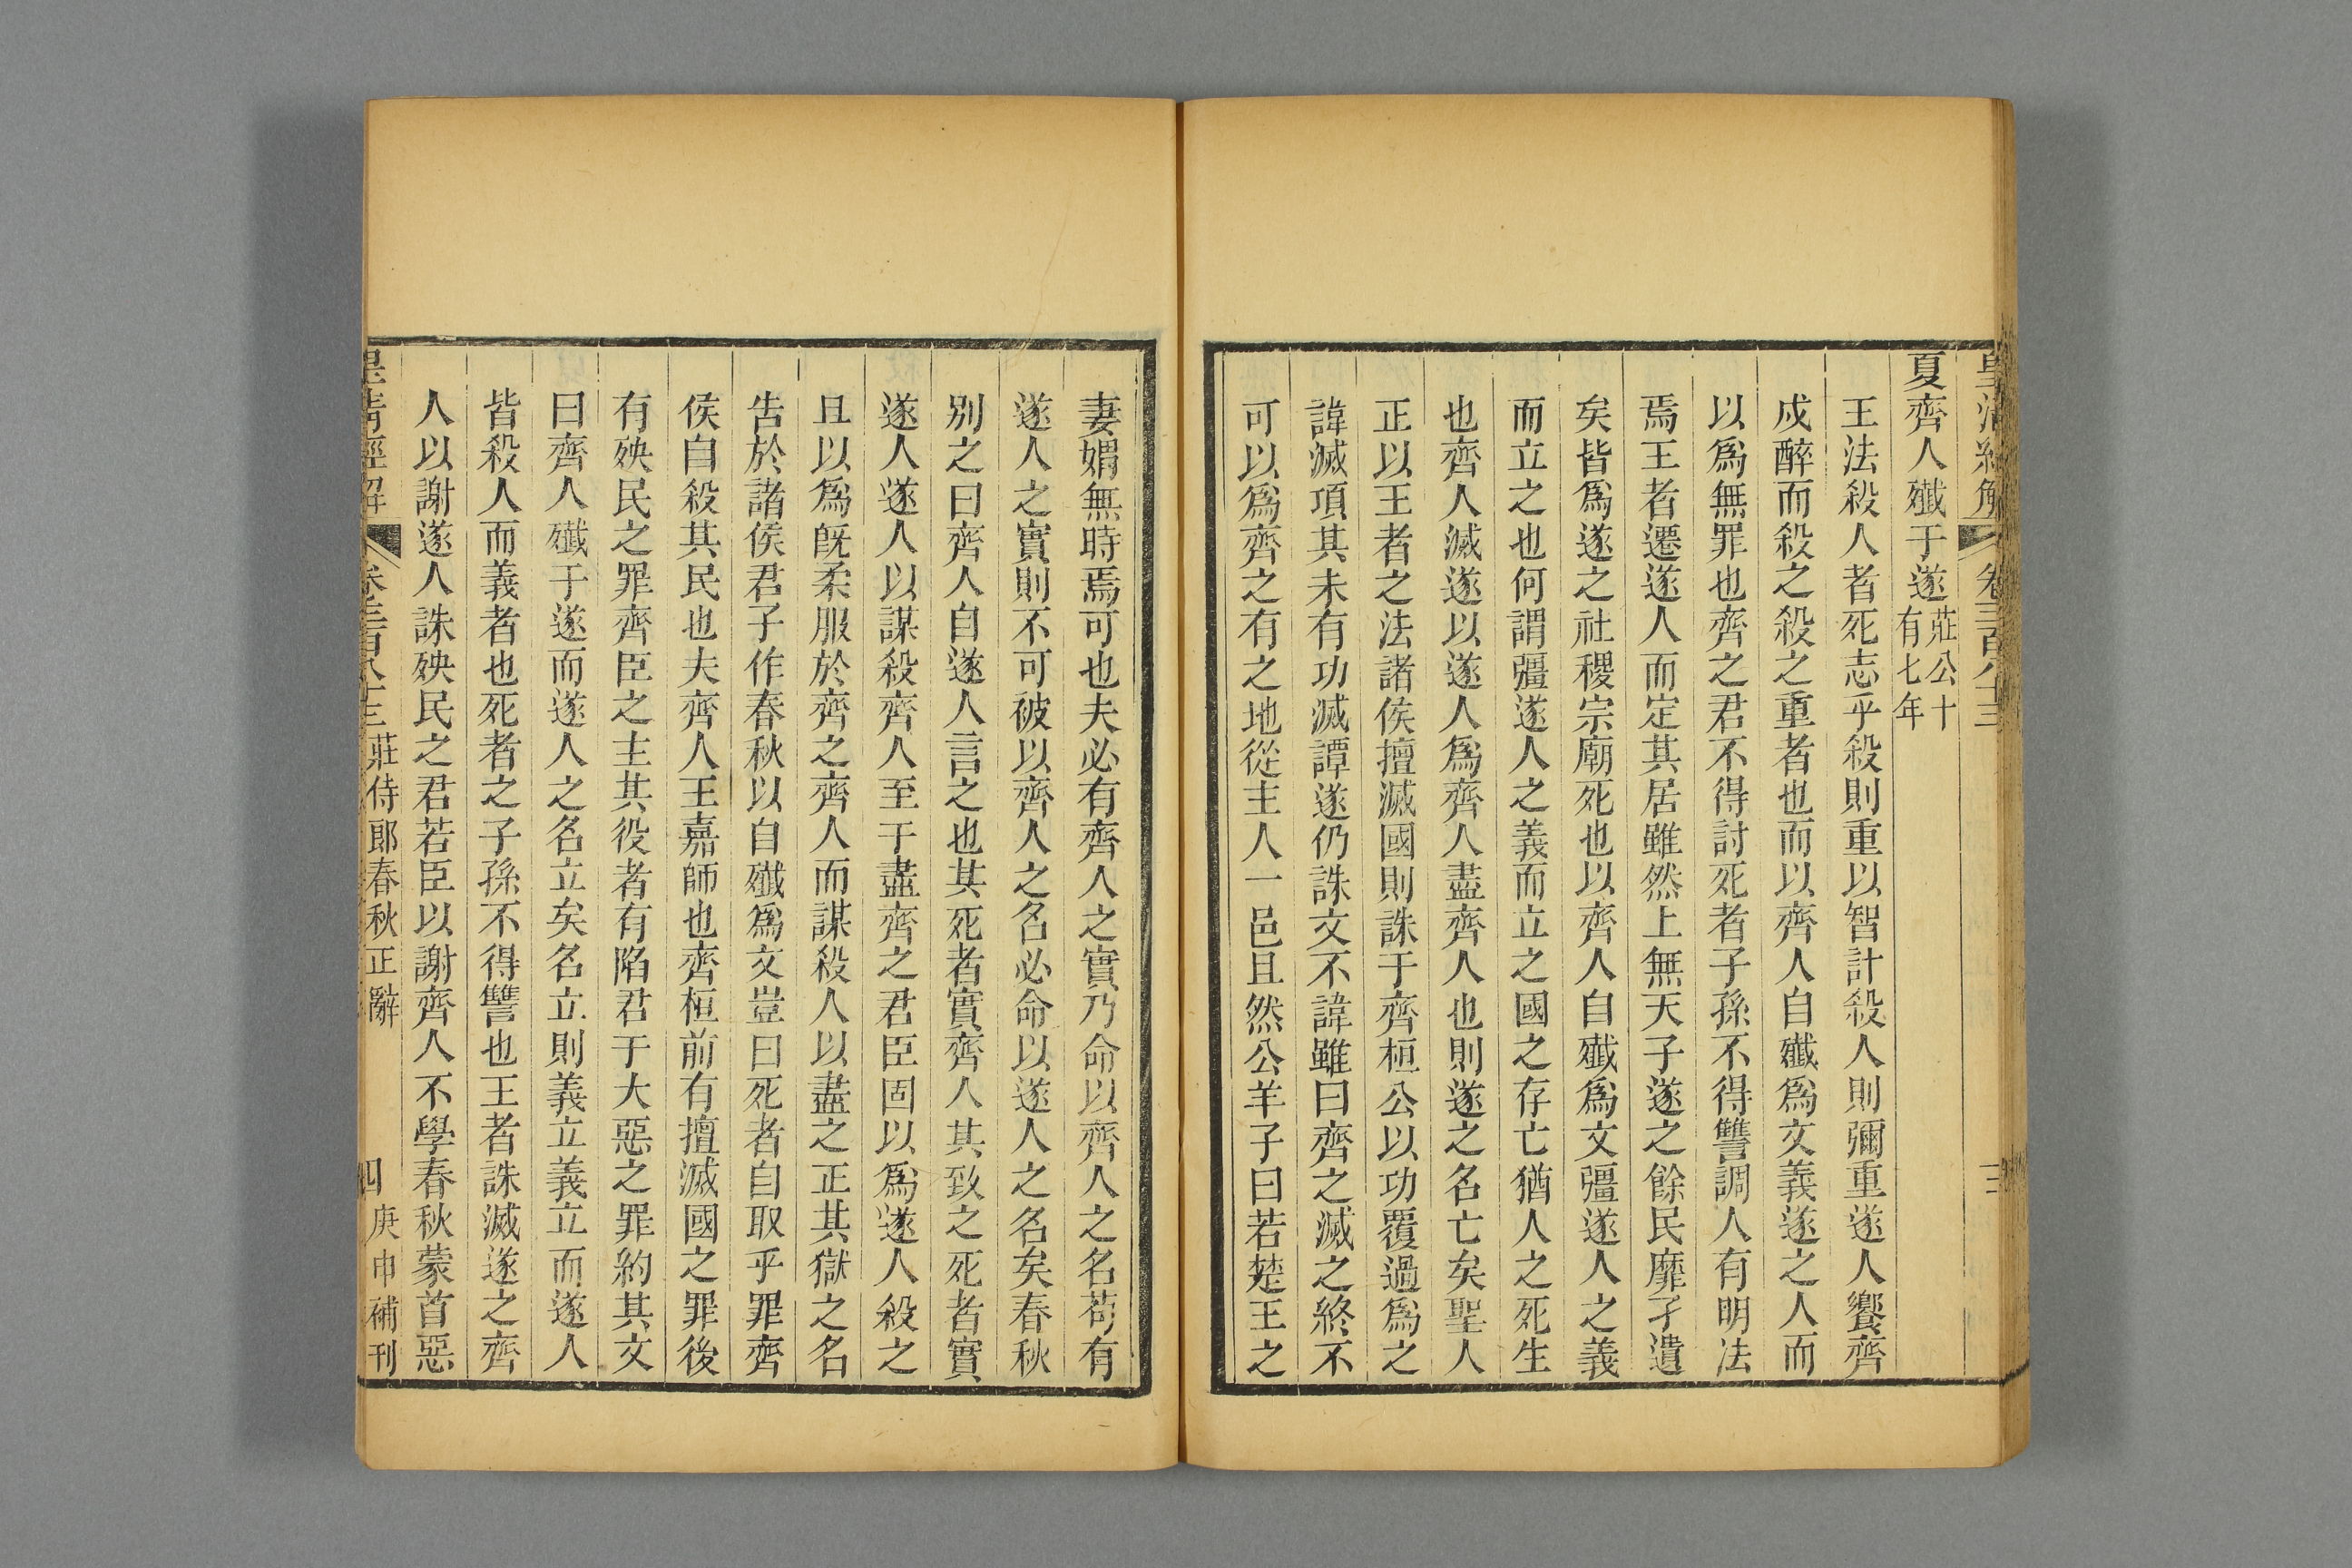 皇清經解
卷三百八十三
三
夏齊人殲于遂莊公十有七年
王法殺人者死志乎殺則重以智計殺人則彌重遂人饗齊
戍醉而殺之殺之重者也而以齊人自殲爲文義遂之人而
以爲無罪也齊之君不得討死者子孫不得讐調人有明法
焉王者遷遂人而定其居雖然上無天子遂之餘民靡孑遺
矣皆爲遂之社稷宗廟死也以齊人自殲爲文彊遂人之義
而立之也何謂彊遂人之義而立之國之存亡猶人之死生
也齊人滅遂以遂人爲齊人盡齊人也則遂之名亡矣聖人
正以王者之法諸侯擅滅國則誅于齊桓公以功覆過爲之
諱滅項其未有功滅譚遂仍誅文不諱雖曰齊之滅之終不
可以爲齊之有之地從主人一邑且然公羊子曰若楚王之
妻媦無時焉可也夫必有齊人之實乃命以齊人之名苟有
遂人之實則不可破以齊人之名必命以遂人之名矣春秋
別之曰齊人自遂人言之也其死者實齊人其致之死者實
遂人遂人以謀殺齊人至于盡齊之君臣固以爲遂人殺之
且以爲旣柔服於齊之齊人而謀殺人以盡之正其獄之名
告於諸侯君子作春秋以自殲爲文豈曰死者自取乎罪齊
侯自殺其民也夫齊人王嘉師也齊桓前有擅滅國之罪後
有殃民之罪齊臣之主其役者有陷君于大惡之罪約其文
曰齊人殲于遂而遂人之名立矣名立則義立義立而遂人
皆殺人而義者也死者之子孫不得讐也王者誅滅遂之齊
人以謝遂人誅殃民之君若臣以謝齊人不學春秋蒙首惡
皇清經解
卷三百八十三
莊侍郎春秋正辭
四
庚申補刊